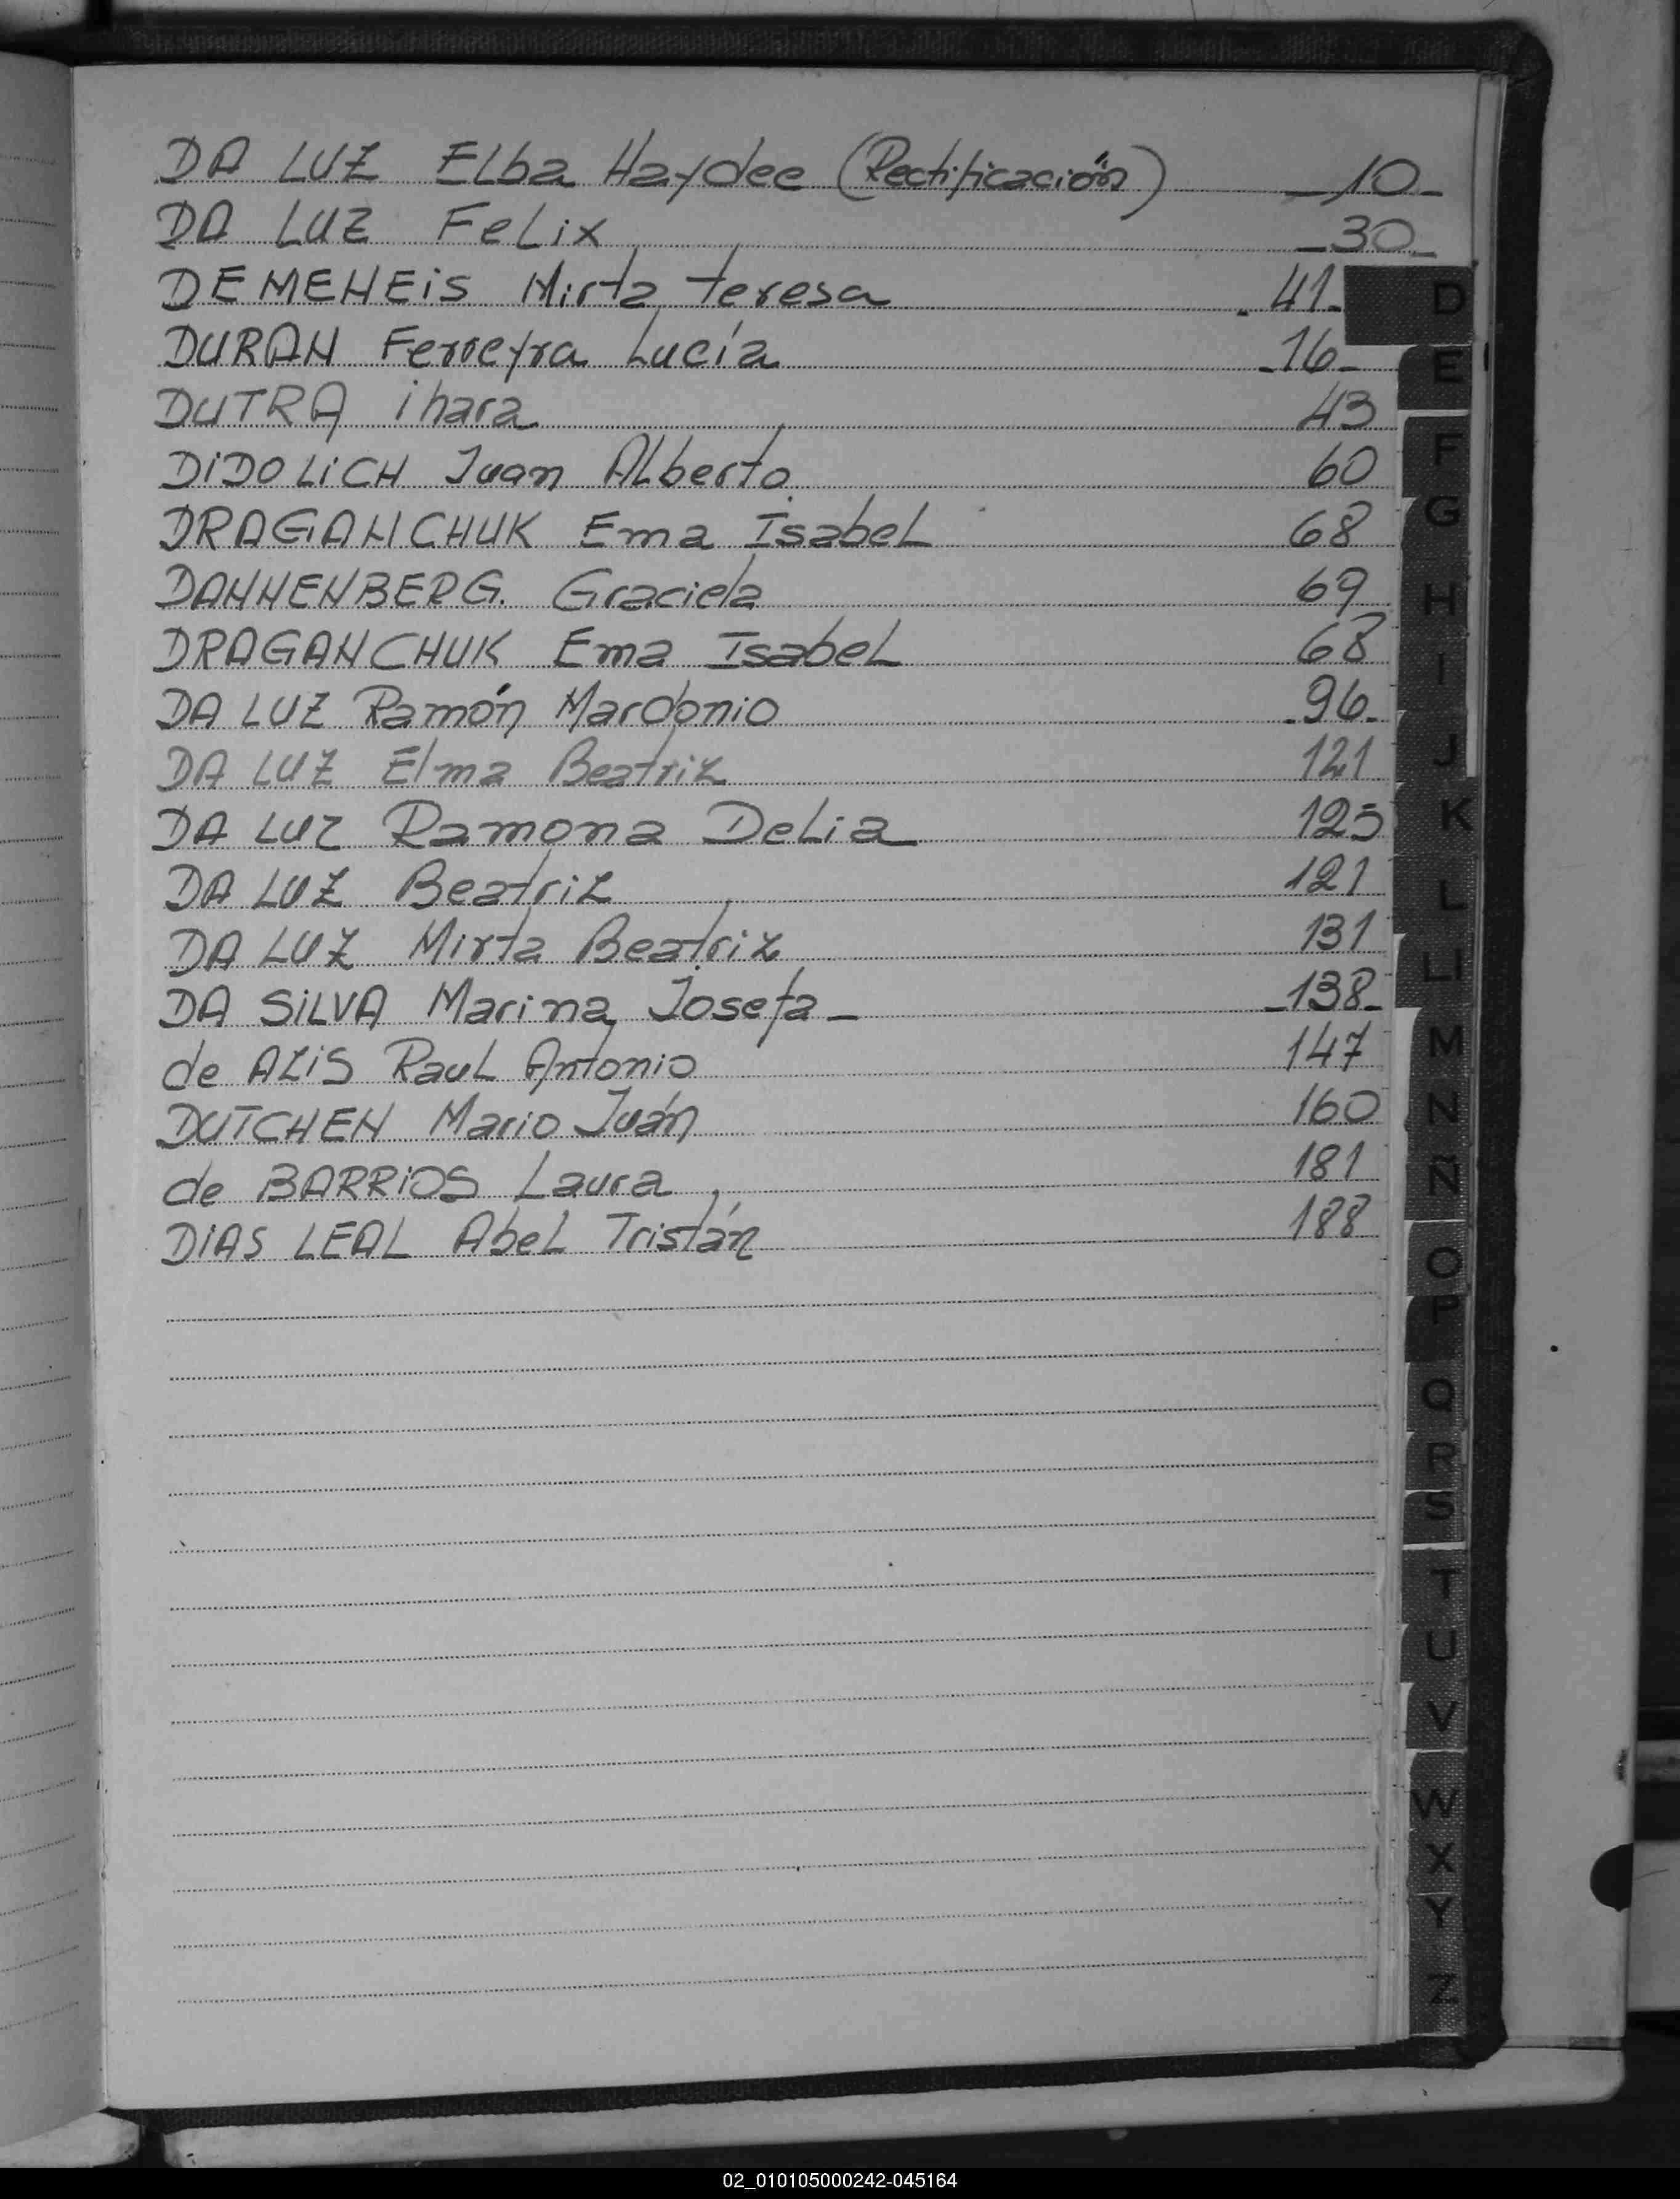 DA LUZ Elba Haydee (Rectificación) _10_
DA LUZ Felix _30_
DEMENEIS Mirta Teresa _41_
DURAN Ferreyra Lucía _16_
DUTRA ihara 43
DIDOLICH Juan Alberto 60
DRAGANCHUK Ema Isabel 68
DANNENBERG. Graciela 69
DRAGANCHUK Ema Isabel 68
DA LUZ Ramón Mardonio _96_
DA LUZ Elma Beatriz 121
DA LUZ Ramona Delia 125
DA LUZ Beatriz 121
DA LUZ Mirta Beatriz 131
DA SILVA Marina Josefa _ _138_
de AZIS Raul Antonio 147
DUTCHEN Mario Juán 160
de BARRIOS Laura 181
DIAS LEAL Abel Tristán 188
D
E
F
G
H
I
J
K
L
Ll
M
N
Ñ
O
P
Q
R
S
T
U
V
W
X
Y
Z
02_010105000242-045164